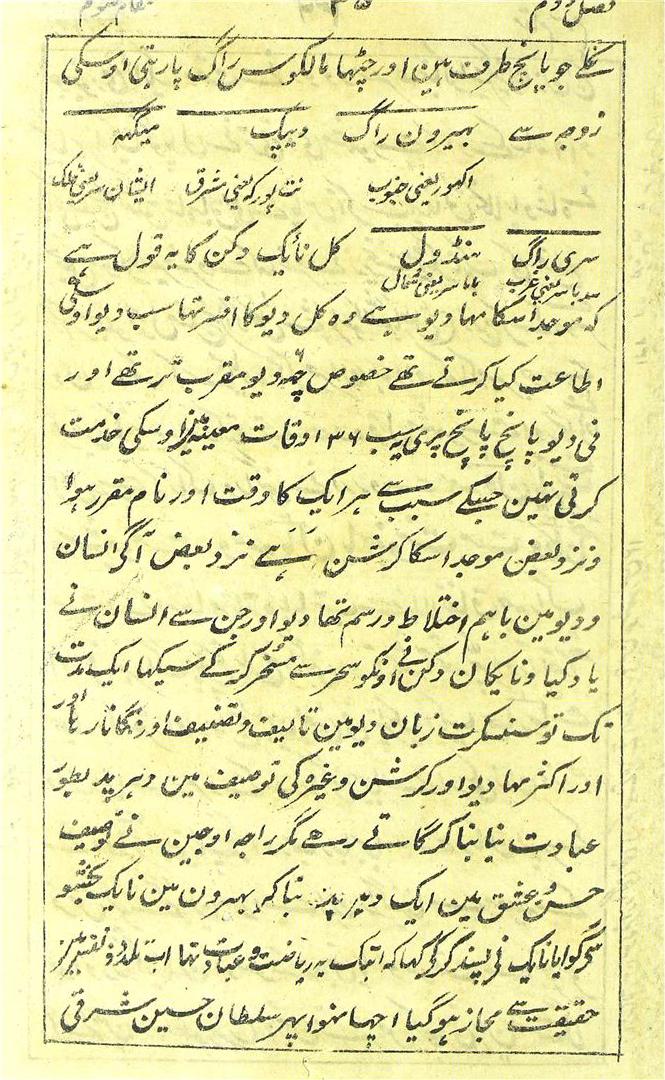 فصل دوم
نکلے جو پانچ طرف ہین اور چہٹا مالکوس راگ پاربتی اوسکی
زوجہ سے بہیرون راگ دیپک میگہہ
اکہور یعنی جنوب نت پورکہ یعنی مشرق ایشان سر یعنی فلک
سری راگ ہنڈول کل نائک دکن کا یہ قول ہے
سدباسر یعنی غرب باباسر یعنی شمال
کہ موجد اسکا مہادیو ہے وہ کل دیو کا افسر تہا سب دیو اوسکی
اطاعت کیا کرتے تھے خصوص چہہ دیو مقرب تر تھے اور
فی دیو پانچ پانچ پری یہ سب ۳۶ اوقات معینہ پر اوسکی خدمت
کرتی تہین جسکے سبب سے ہر ایک کا وقت اور نام مقرر ہوا
و نزد بعض موجد اسکا کرشن ہے نزد بعض آگے انسان
و دیو مین باہم اختلاط و رسم تھا دیو اور جن سے انسان نے
یاد کیا و نایکان دکن نے اونکو سحر سے مسخر کر کے سیکہا ایک مدت
تک تو سنسکرت زبان دیو مین تالیف و تصنیف اور گانا رہا اور
اور اکثر مہادیو اور کرشن وغیرہ کی توصیف مین دہرپد بطور
عبادت بنا بنا کر گاتے رہے مگر راجہ اوجین نے توصیف
حسن و عشق مین ایک دہرپد بنا کر بہرون مین نایک بخشو
سے گوایا نایک نے پسند کر کے کہا کہ ابتک یہ ریاضت و عبادت تہا اب تلذذ و
حقیقت سے مجاز ہو گیا اچہا نہوا پہر سلطان حسین شرقی